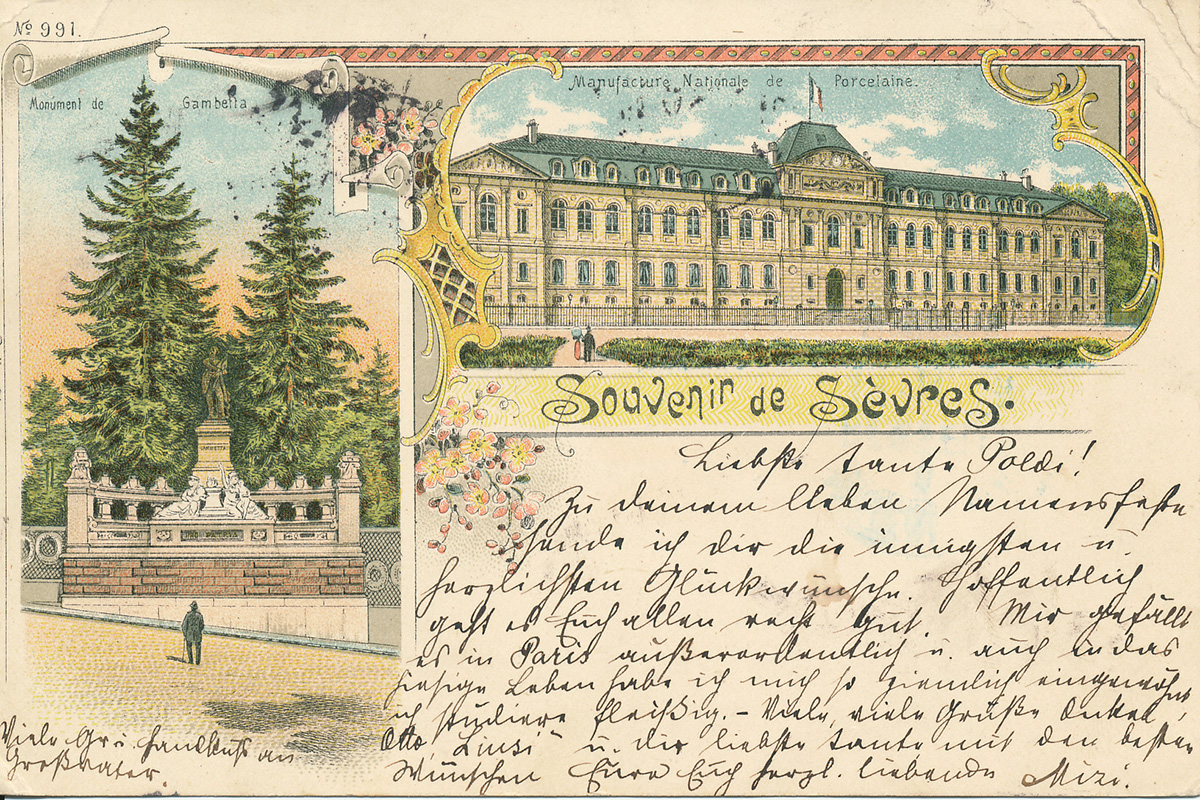 No 991.
Monument de Gambetta
Manufacture Nationale de Porcelaine.
Souvenir de Sèvres.
Liebste Tante Poldi!
Zu deinem lieben Namensfeste
sende ich dir die innigsten u.
herzlichsten Glückwünsche. Hoffentlich
geht es Euch allen recht gut. Mir gefällt
es in Paris außerordentlich u. auch in das
hiesige Leben habe ich mich so ziemlich eingewöhnt
u. studiere fleißig. - Viele, viele Grüße Onkel,
Otto, u. dir liebste Tante mit den besten
Wünschen Eure Euch herzl. liebende Mizi.
Viele Gr. u. Handkuss an
Großvater.